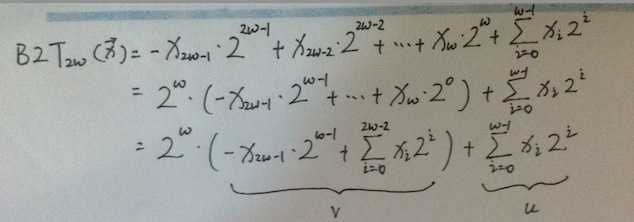 B2T₂w(x⃗) = -x₂w-1·2^(2w-1) + x₂w-2·2^(2w-2) + ··· + xw·2^w + Σ_(i=0)^(w-1) xi 2^i
= 2^w·(-x₂w-1·2^(w-1) + ··· + xw·2^0) + Σ_(i=0)^(w-1) xi 2^i
= 2^w·(-x₂w-1·2^(w-1) + Σ_(i=0)^(2w-2) xi 2^i) + Σ_(i=0)^(w-1) xi 2^i
V u